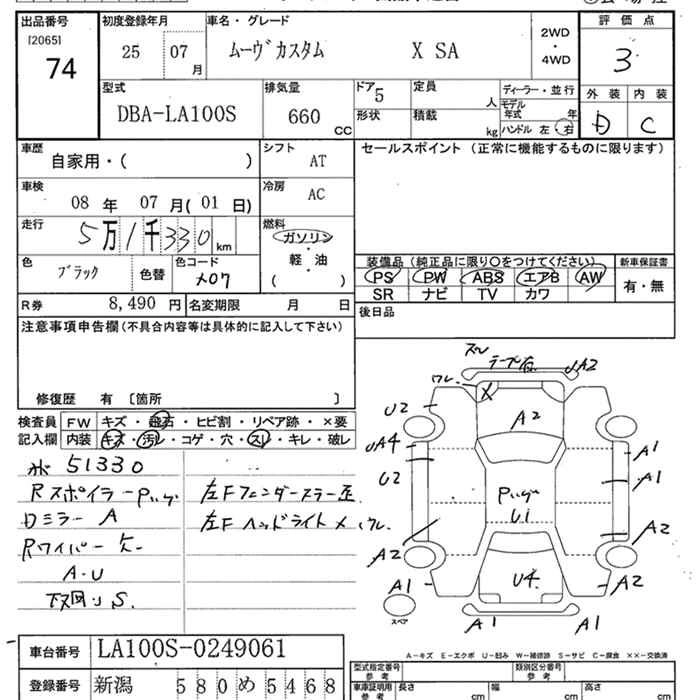 出品番号
[2065]
74
初度登録年月
25 07 月
車名・グレード
ムーヴカスタム X SA
2WD
・
4WD
評価点
3
外装 内装
D C
型式
DBA-LA100S
排気量
660 CC
ドア 5
定員 人
形状
積載 kg
ディーラー・並行
モデル年式 年
ハンドル 左・右
車歴
自家用・( )
シフト
AT
セールスポイント (正常に機能するものに限ります)
車検
08 年 07 月( 01 日)
冷房
AC
走行
5万1千330 km
燃料
ガソリン
・
軽油
・
( )
色
ブラック
色替
色コード
X07
装備品 (純正品に限り○をつけてください)
PS PW ABS エアB AW
SR ナビ TV カワ
新車保証書
有・無
R券 8,490 円
名変期限 月 日
後日品
注意事項申告欄(不具合内容等は具体的に記入して下さい)
修復歴 有 〔箇所 〕
検査員
記入欄
FW キズ・飛石・ヒビ割・リペア跡・×要
内装 キズ・汚レ・コゲ・穴・スレ・キレ・破レ
51330
Rスポイラー
Dミラー A
Rワイパー
A・U
S.
左Fフェンダーステー歪
左Fヘッドライト
テープ有
UA2
ワレ
U2
A2
UA4
U2
A1
A1
U1
A2
A2
A1
U4
A2
A1
A1
スペア
A-キズ E-エクボ U-凹み W-補修跡 S-サビ C-腐食 XX-交換済
車台番号 LA100S-0249061
登録番号 新潟 580 め 5468
型式指定番号
参考
類別区分番号
参考
車庫証明用
参考
長さ cm
幅 cm
高さ cm